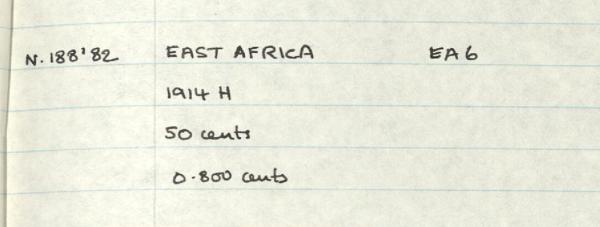 N.188'82 EAST AFRICA EA6
1914 H
50 cents
0.800 cents